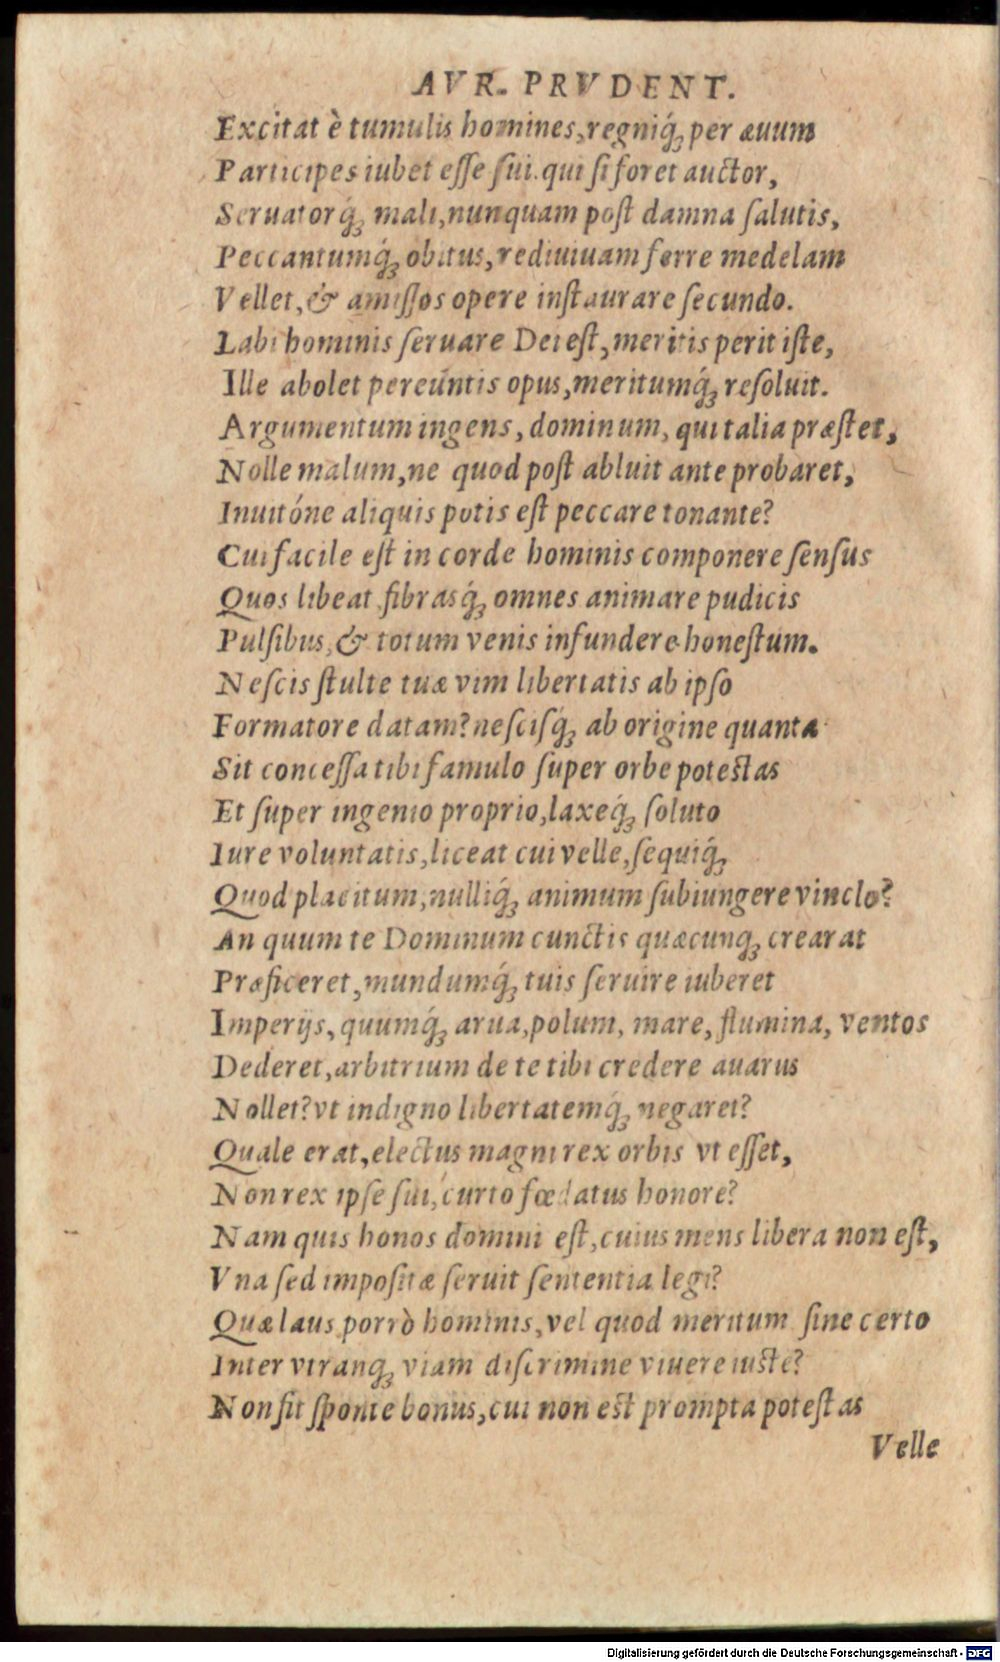 AVR. PRVDENT.
Excitat è tumulis homines, regniq́; per æuum
Participes iubet eſſe ſui. qui ſi foret auctor,
Seruatorq́; mali, nunquam poſt damna ſalutis,
Peccantumq́; obitus, rediuiuam ferre medelam
Vellet, & amiſſos opere inſtaurare ſecundo.
Labi hominis ſeruare Dei eſt, meritis perit iſte,
Ille abolet pereuntis opus, meritumq́; reſoluit.
Argumentum ingens, dominum, qui talia præſtet,
Nolle malum, ne quod poſt abluit ante probaret,
Inuitóne aliquis potis eſt peccare tonante?
Cui facile eſt in corde hominis componere ſenſus
Quos libeat fibrasq́; omnes animare pudicis
Pulſibus, & totum venis infundere honeſtum.
Neſcis ſtulte tuæ vim libertatis ab ipſo
Formatore datam? neſciſq́; ab origine quanta
Sit conceſſa tibi famulo ſuper orbe poteſtas
Et ſuper ingenio proprio, laxeq́; ſoluto
Iure voluntatis, liceat cui velle, ſequiq́;
Quod placitum, nulliq́; animum ſubiungere vinclo?
An quum te Dominum cunctis quæcunq; crearat
Præficeret, mundumq́; tuis ſeruire iuberet
Imperijs, quumq́; arua, polum, mare, flumina, ventos
Dederet, arbitrium de te tibi credere auarus
Nollet? vt indigno libertatemq́; negaret?
Quale erat, electus magni rex orbis vt eſſet,
Non rex ipſe ſui, curto fœdatus honore?
Nam quis honos domini eſt, cuius mens libera non eſt,
Vna ſed impoſitæ ſeruit ſententia legi?
Quæ laus porrò hominis, vel quod meritum ſine certo
Inter vtranq; viam diſcrimine viuere iuſte?
Non ſit ſponte bonus, cui non eſt prompta poteſtas
Velle
Digitalisierung gefördert durch die Deutsche Forschungsgemeinschaft - DFG